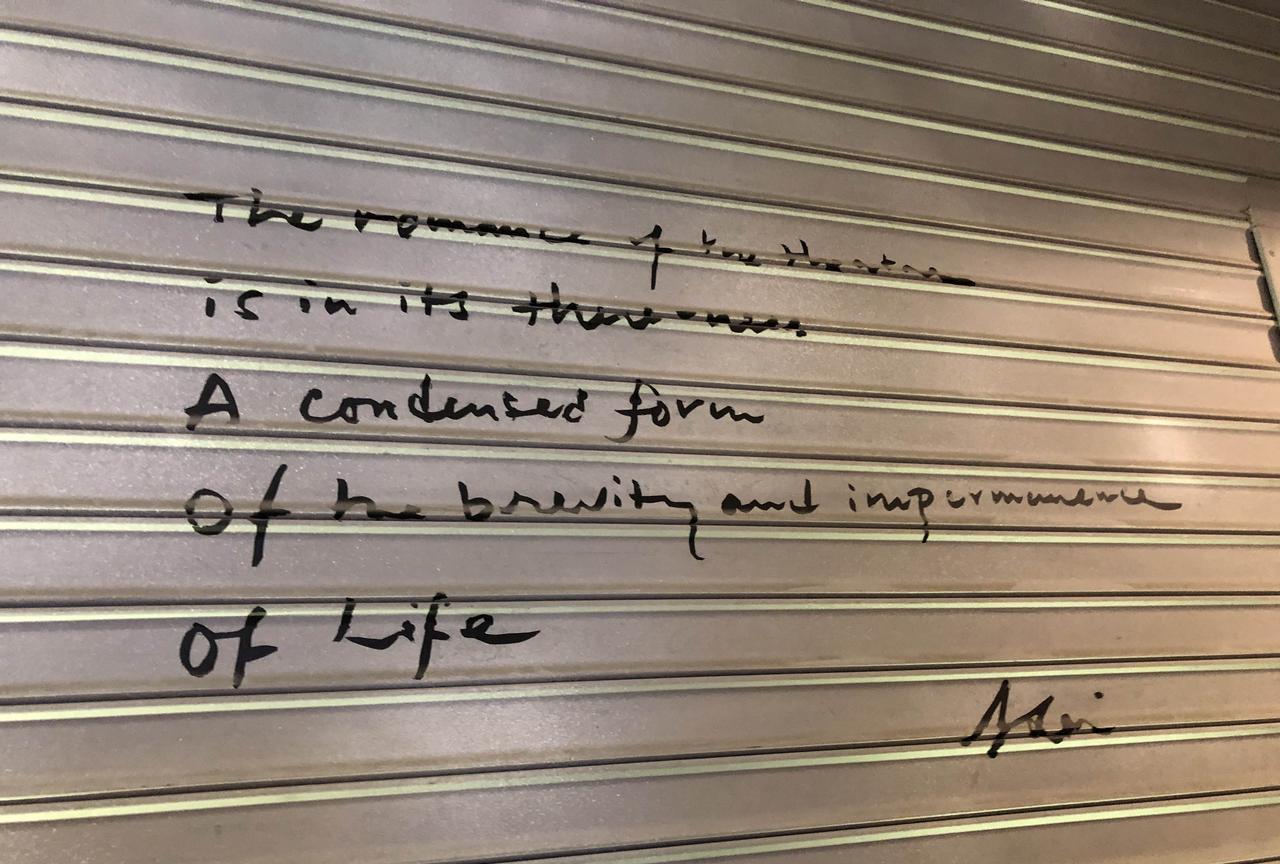 The romance of the theatre
is in its there-ness
A condensed form
Of the brevity and impermanence
Of Life